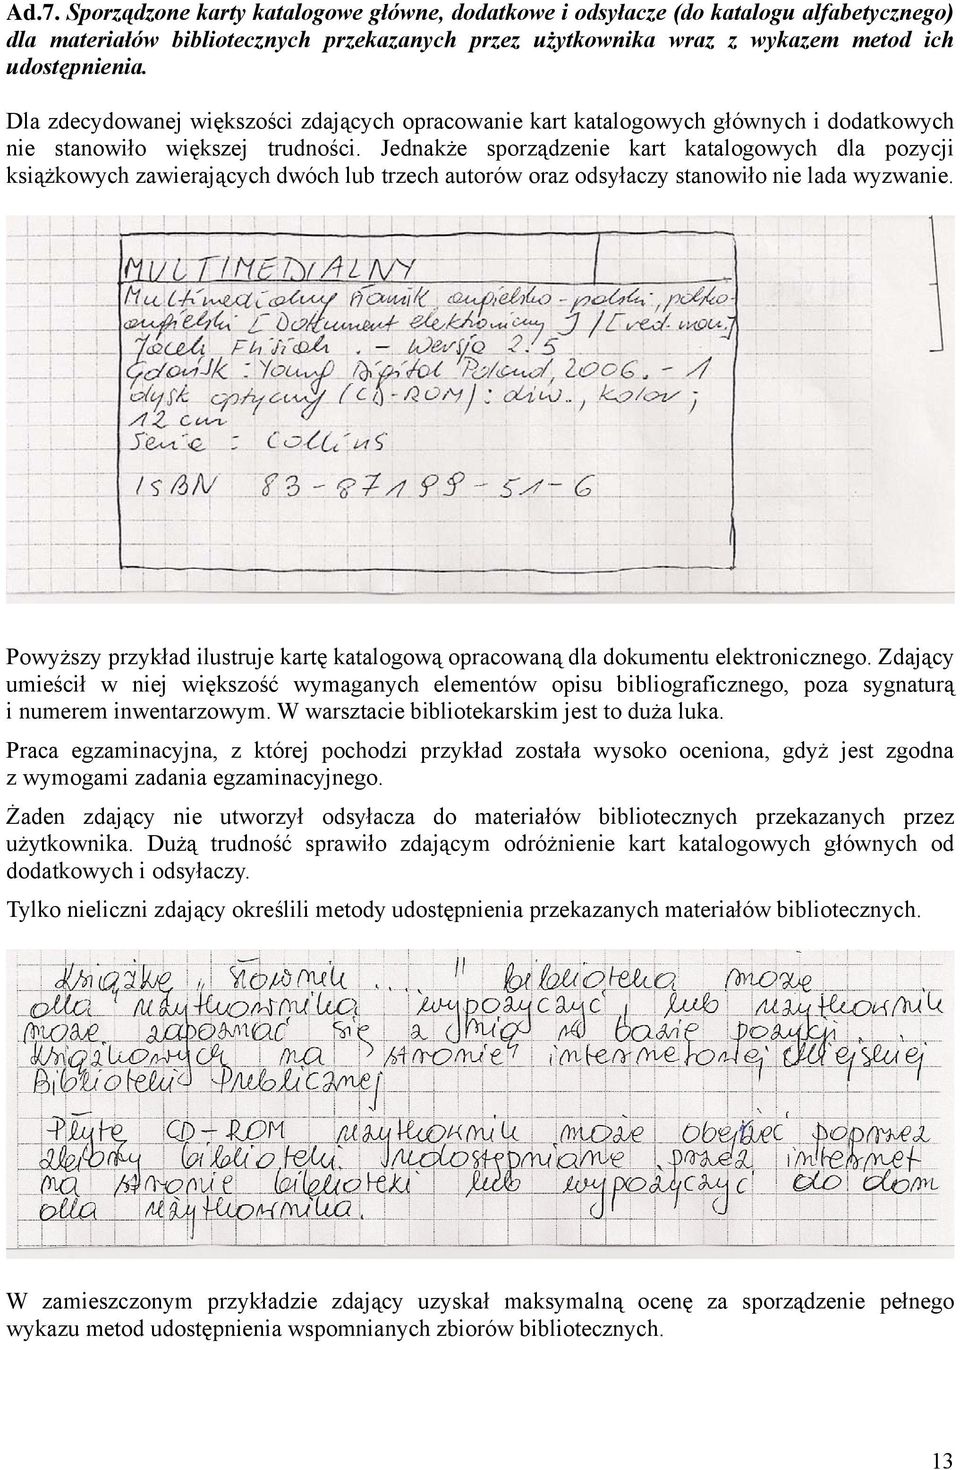 Ad.7. Sporządzone karty katalogowe główne, dodatkowe i odsyłacze (do katalogu alfabetycznego)
dla materiałów bibliotecznych przekazanych przez użytkownika wraz z wykazem metod ich
udostępnienia.
Dla zdecydowanej większości zdających opracowanie kart katalogowych głównych i dodatkowych
nie stanowiło większej trudności. Jednakże sporządzenie kart katalogowych dla pozycji
książkowych zawierających dwóch lub trzech autorów oraz odsyłaczy stanowiło nie lada wyzwanie.
MULTIMEDIALNY
Multimedialny słownik angielsko-polski, polsko-
angielski [Dokument elektroniczny] / [red. nau.]
Jacek Fisiak. - Wersja 2.5
Gdańsk : Young Digital Poland, 2006. - 1
dysk optyczny (CD-ROM) : dźw., kolor ;
12 cm
Seria : Collins
ISBN 83-87199-51-6
Powyższy przykład ilustruje kartę katalogową opracowaną dla dokumentu elektronicznego. Zdający
umieścił w niej większość wymaganych elementów opisu bibliograficznego, poza sygnaturą
i numerem inwentarzowym. W warsztacie bibliotekarskim jest to duża luka.
Praca egzaminacyjna, z której pochodzi przykład została wysoko oceniona, gdyż jest zgodna
z wymogami zadania egzaminacyjnego.
Żaden zdający nie utworzył odsyłacza do materiałów bibliotecznych przekazanych przez
użytkownika. Dużą trudność sprawiło zdającym odróżnienie kart katalogowych głównych od
dodatkowych i odsyłaczy.
Tylko nieliczni zdający określili metody udostępnienia przekazanych materiałów bibliotecznych.
Książkę „Słownik ...." biblioteka może
dla użytkownika wypożyczyć, lub użytkownik
może zapoznać się z nią w bazie pozycji
książkowych na stronie internetowej Miejskiej
Biblioteki Publicznej
Płytę CD-ROM użytkownik może obejrzeć poprzez
zbiory biblioteki udostępniane przez internet
na stronie biblioteki lub wypożyczyć do dom
dla użytkownika.
W zamieszczonym przykładzie zdający uzyskał maksymalną ocenę za sporządzenie pełnego
wykazu metod udostępnienia wspomnianych zbiorów bibliotecznych.
13